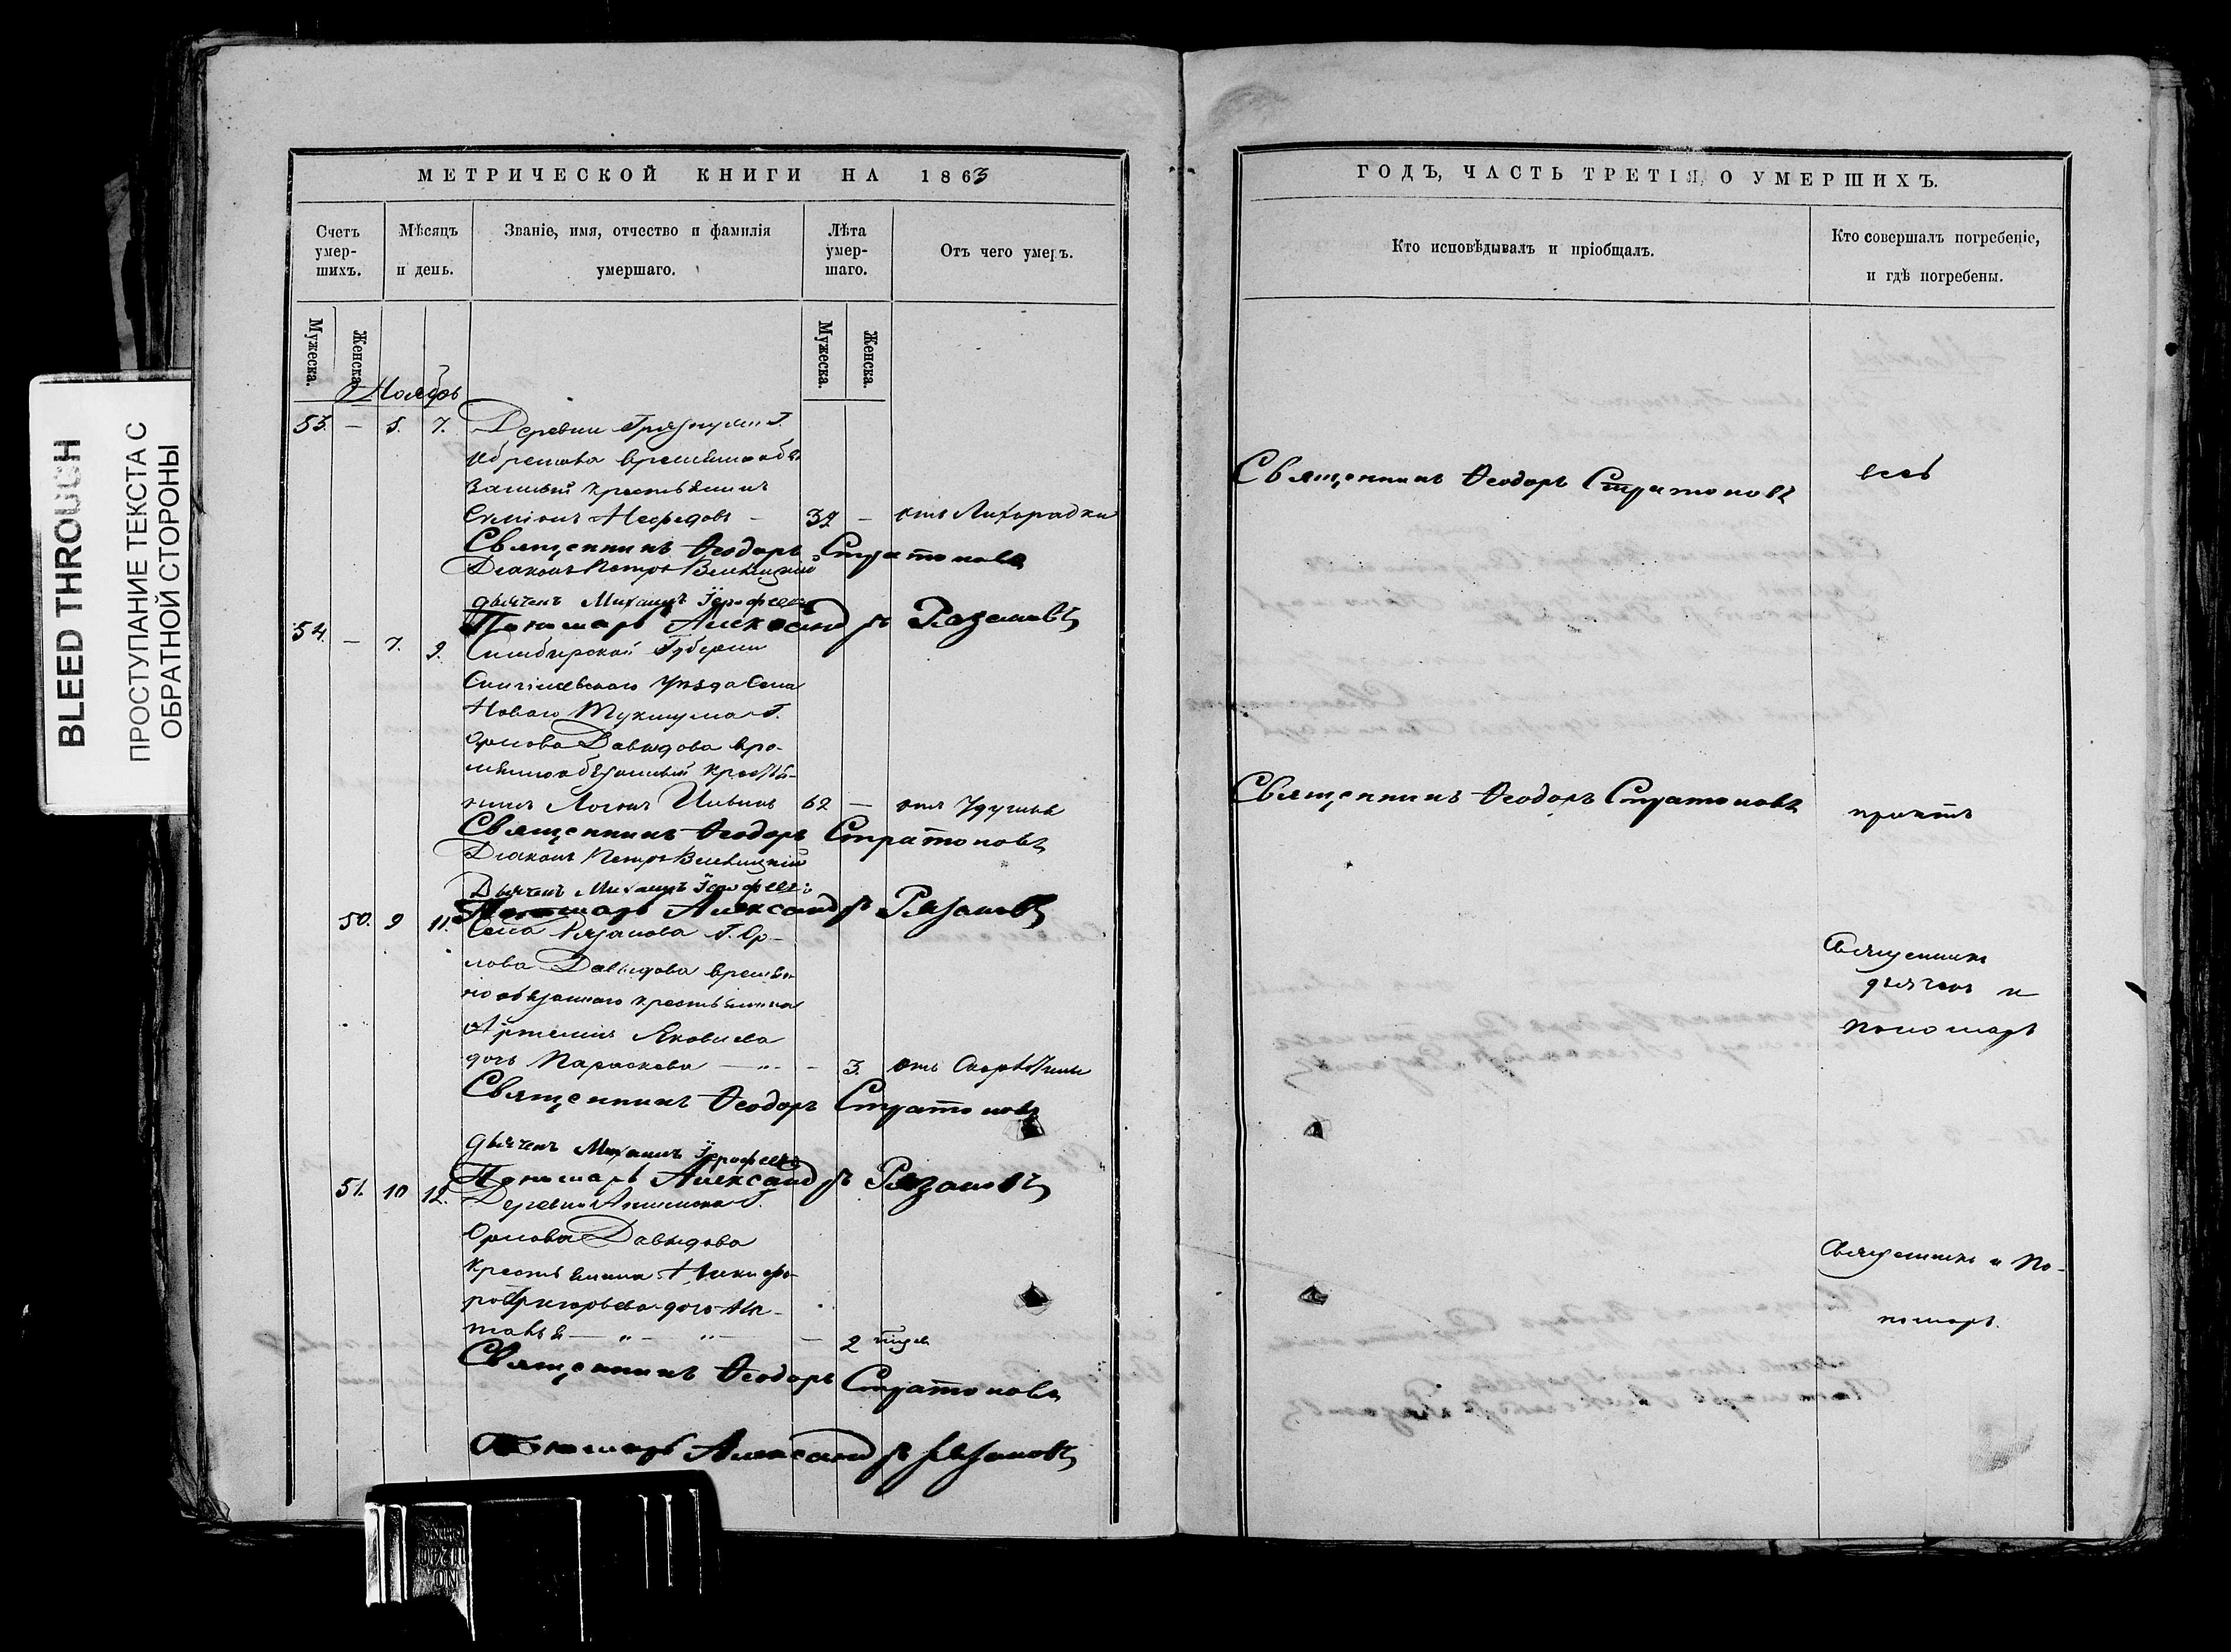 BLEED THROUGH
ПРОСТУПАНИЕ ТЕКСТА С
ОБРАТНОЙ СТОРОНЫ
МЕТРИЧЕСКОЙ КНИГИ НА 1863
Счетъ умер-шихъ.
Мѣсяцъ и день.
Званіе, имя, отчество и фамилія умершаго.
Лѣта умер-шаго.
Отъ чего умеръ.
Мужеска.
Женска.
Мужеска.
Женска.
Ноябрь
53. — 5. 7. Деревни Г.
временно обя
занный крестьянинъ
Нефедовъ — 32 — отъ Лихорадки
Священникъ Ѳеодоръ Стратоновъ
Діаконъ Петръ
дьячекъ Михаилъ Іерофеевъ
Пономарь Александръ Рязановъ
54. — 7. 9. Симбирской Губерніи
Сенгилевскаго Уѣзда Села
Новаго Тукшума Г.
Орлова Давыдова вре-
менно обязанный крестья-
нинъ Логинъ Ильинъ 62 — отъ Удушья
Священникъ Ѳеодоръ Стратоновъ
Діаконъ Петръ
Дьячекъ Михаилъ Іерофеевъ
Пономарь Александръ Рязановъ
50. 9 11. Села Рязанова Г. Ор-
лова Давыдова времен
но обязаннаго крестьянина
Яковлева
дочь Параскева — „ — — 3. отъ
Священникъ Ѳеодоръ Стратоновъ
дьячекъ Михаилъ Іерофеевъ
Пономарь Александръ Рязановъ
51. 10 12. Деревни Г.
Орлова Давыдова
крестьянина Никифо-
ра Григорьева дочь Та-
— „ — „ — — 2
Священникъ Ѳеодоръ Стратоновъ
Пономарь Александръ Рязановъ
ГОДЪ, ЧАСТЬ ТРЕТІЯ, О УМЕРШИХЪ.
Кто исповѣдывалъ и пріобщалъ.
Кто совершалъ погребеніе, и гдѣ погребены.
Священникъ Ѳеодоръ Стратоновъ
весь
Священникъ Ѳеодоръ Стратоновъ
причтъ
Священникъ
дьячекъ и
пономарь
Священникъ и По-
номарь.